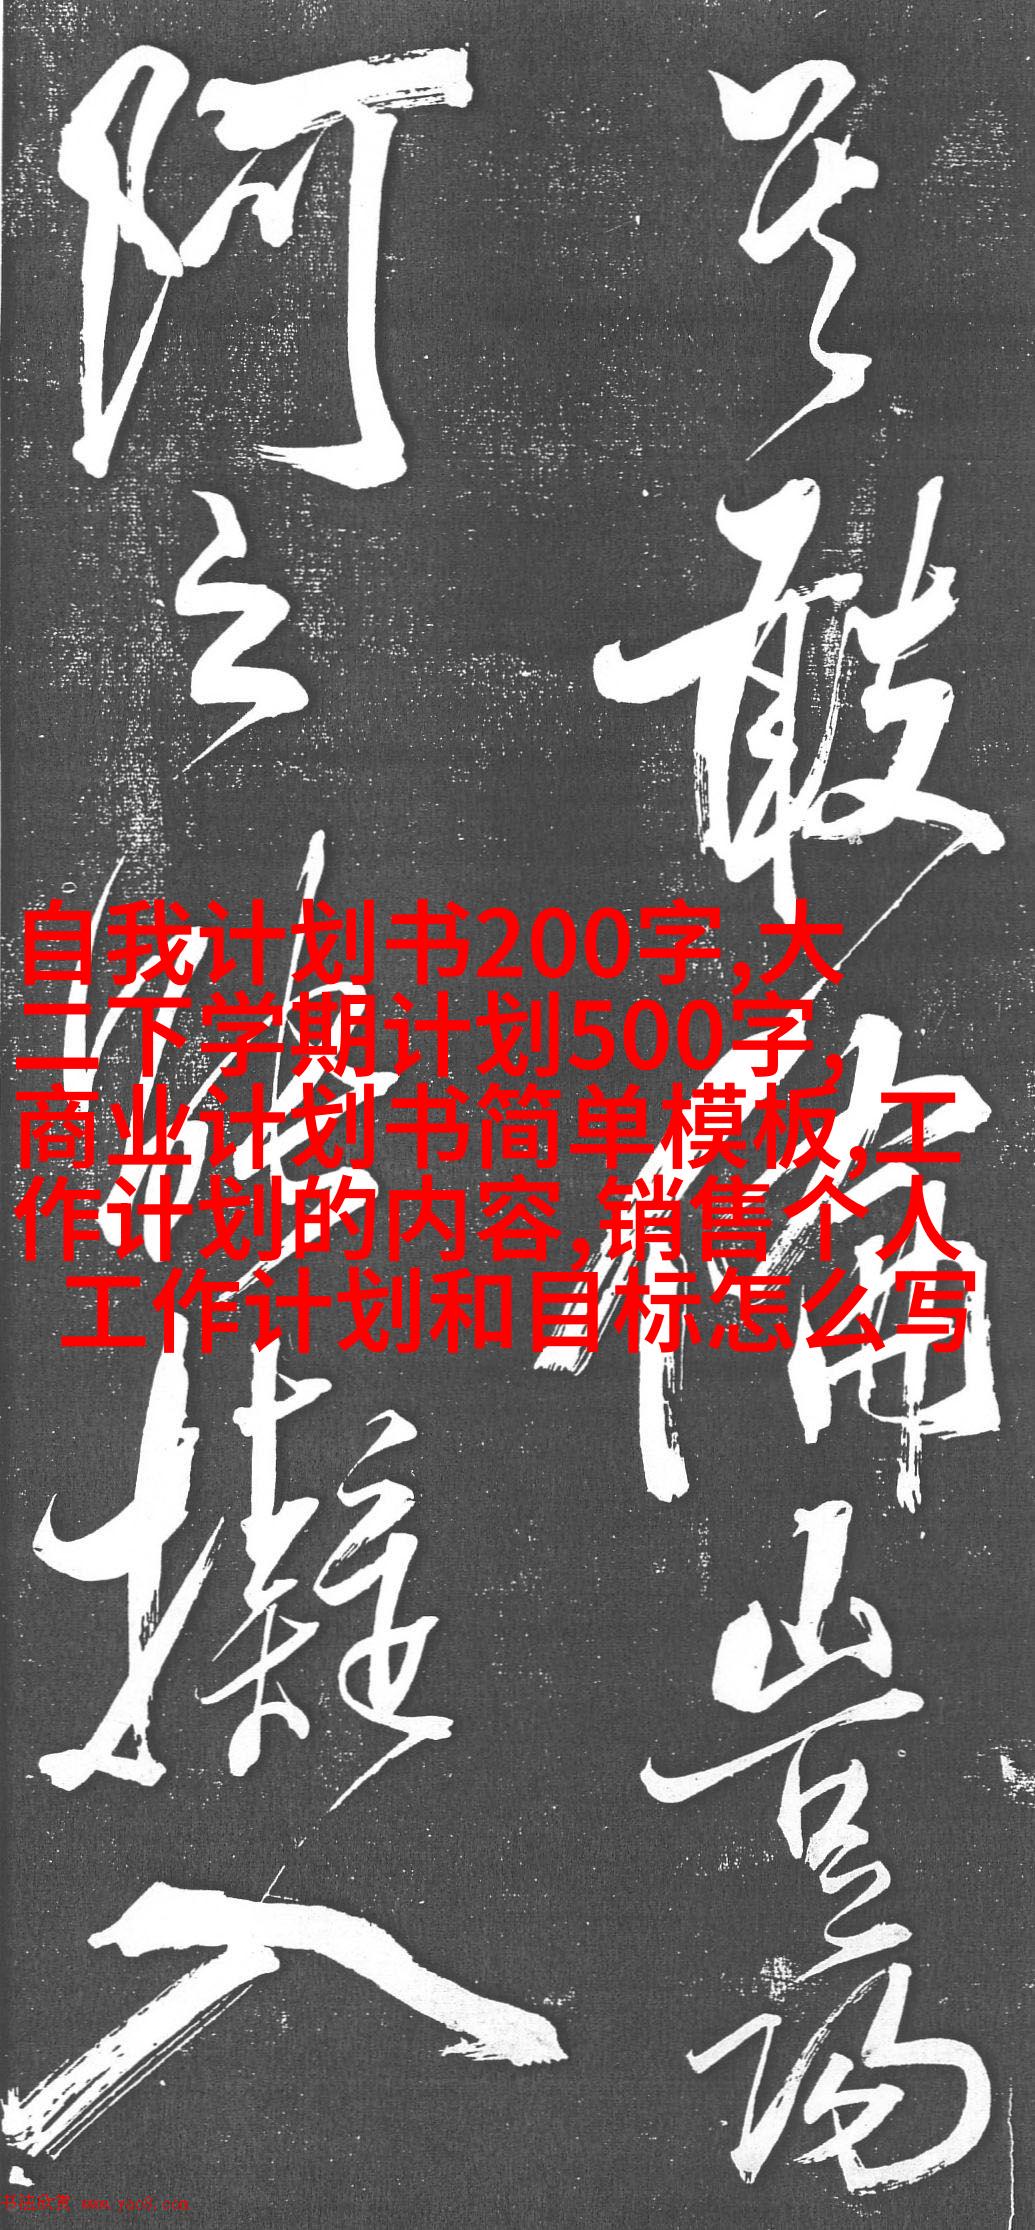 敢
豈
阿之
擬入
自我计划书200字,大
二下学期计划500字,
商业计划书简单模板,工
作计划的内容,销售个人
工作计划和目标怎么写
书法欣赏 www.yac8.com